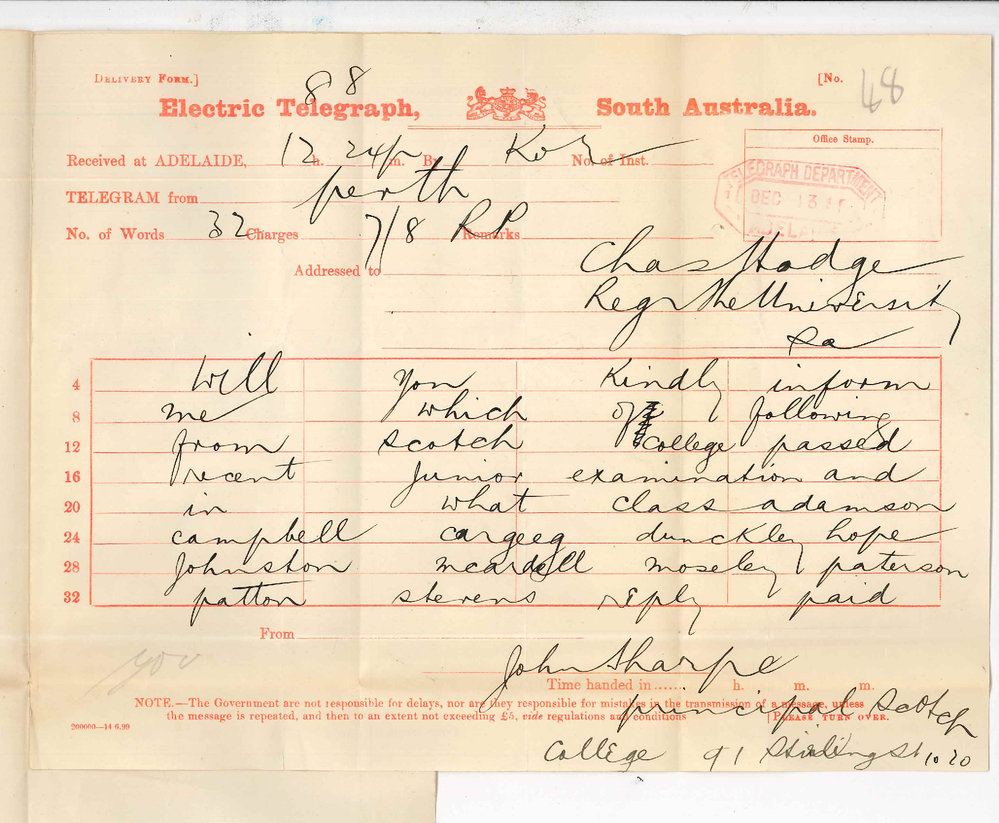 DELIVERY FORM.] 88 [No. 48
Electric Telegraph, South Australia.
Office Stamp.
Received at ADELAIDE, 12 h. 24 p m. By No. of Inst.
TELEGRAPH DEPARTMENT
DEC 13
ADELAIDE
TELEGRAM from perth
No. of Words 32 Charges 7/8 Remarks RP
Addressed to Chas Hodge
Regr the University
Sa
4 Will you kindly inform
8 me which of following
12 from scotch college passed
16 recent junior examination and
20 in what class adamson
24 campbell cargeeg dunckley hope
28 Johnston mcardell moseley paterson
32 patton stevens reply paid
From
you
John Sharpe
Time handed in...... h. m. m.
NOTE.—The Government are not responsible for delays, nor are they responsible for mistakes in the transmission of a message, unless
the message is repeated, and then to an extent not exceeding £5, vide regulations and conditions [PLEASE TURN OVER.
principal Scotch
200000—14 6.99
College 91 Stirling St 10 20